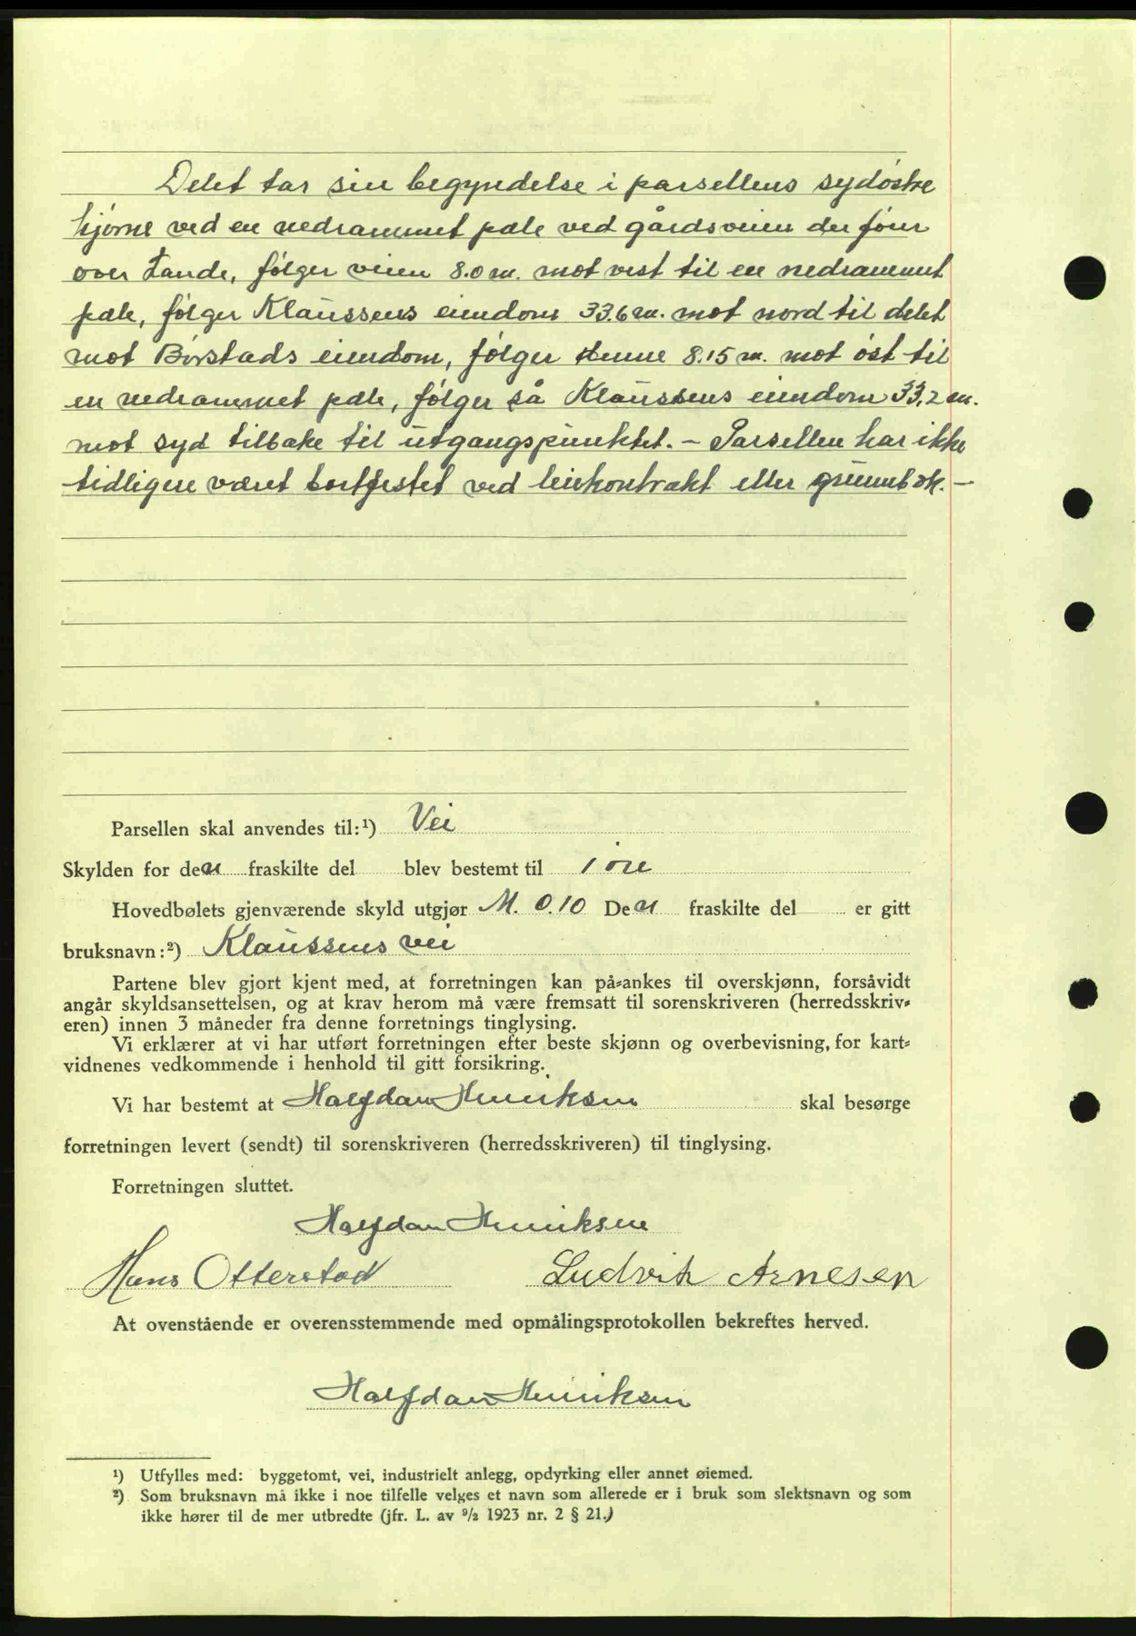 Delet tar sin begyndelse i parsellens sydøstre
hjørne ved en nedrammet pæle ved gårdsveien der fører
over Lande, følger veien 8.0 m. mot vest til en nedrammet
pæle, følger Klaussens eiendom 33.6 m. mot nord til delet
mot Børstads eiendom, følger denne 8.15 m. mot øst til
en nedrammet pæle, følger så Klaussens eiendom 33,2 m.
mot syd tilbake til utgangspunktet. – Parsellen har ikke
tidligere været bortfestet ved leiekontrakt eller grunnbok. –
Parsellen skal anvendes til:¹) Vei
Skylden for den fraskilte del blev bestemt til 1 øre
Hovedbølets gjenværende skyld utgjør M. 0.10 Den fraskilte del er gitt
bruksnavn:²) Klaussens vei
Partene blev gjort kjent med, at forretningen kan på-ankes til overskjønn, forsåvidt
angår skyldsansettelsen, og at krav herom må være fremsatt til sorenskriveren (herredsskriv-
eren) innen 3 måneder fra denne forretnings tinglysing.
Vi erklærer at vi har utført forretningen efter beste skjønn og overbevisning, for kart-
vidnenes vedkommende i henhold til gitt forsikring.
Vi har bestemt at Halfdan Henriksen skal besørge
forretningen levert (sendt) til sorenskriveren (herredsskriveren) til tinglysing.
Forretningen sluttet.
Halfdan Henriksen
Hans Otterstad Ludvik Arnesen
At ovenstående er overensstemmende med opmålingsprotokollen bekreftes herved.
Halfdan Henriksen
¹) Utfylles med: byggetomt, vei, industrielt anlegg, opdyrking eller annet øiemed.
²) Som bruksnavn må ikke i noe tilfelle velges et navn som allerede er i bruk som slektsnavn og som
ikke hører til de mer utbredte (jfr. L. av ⁹/₂ 1923 nr. 2 § 21.)